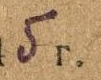 5 г.